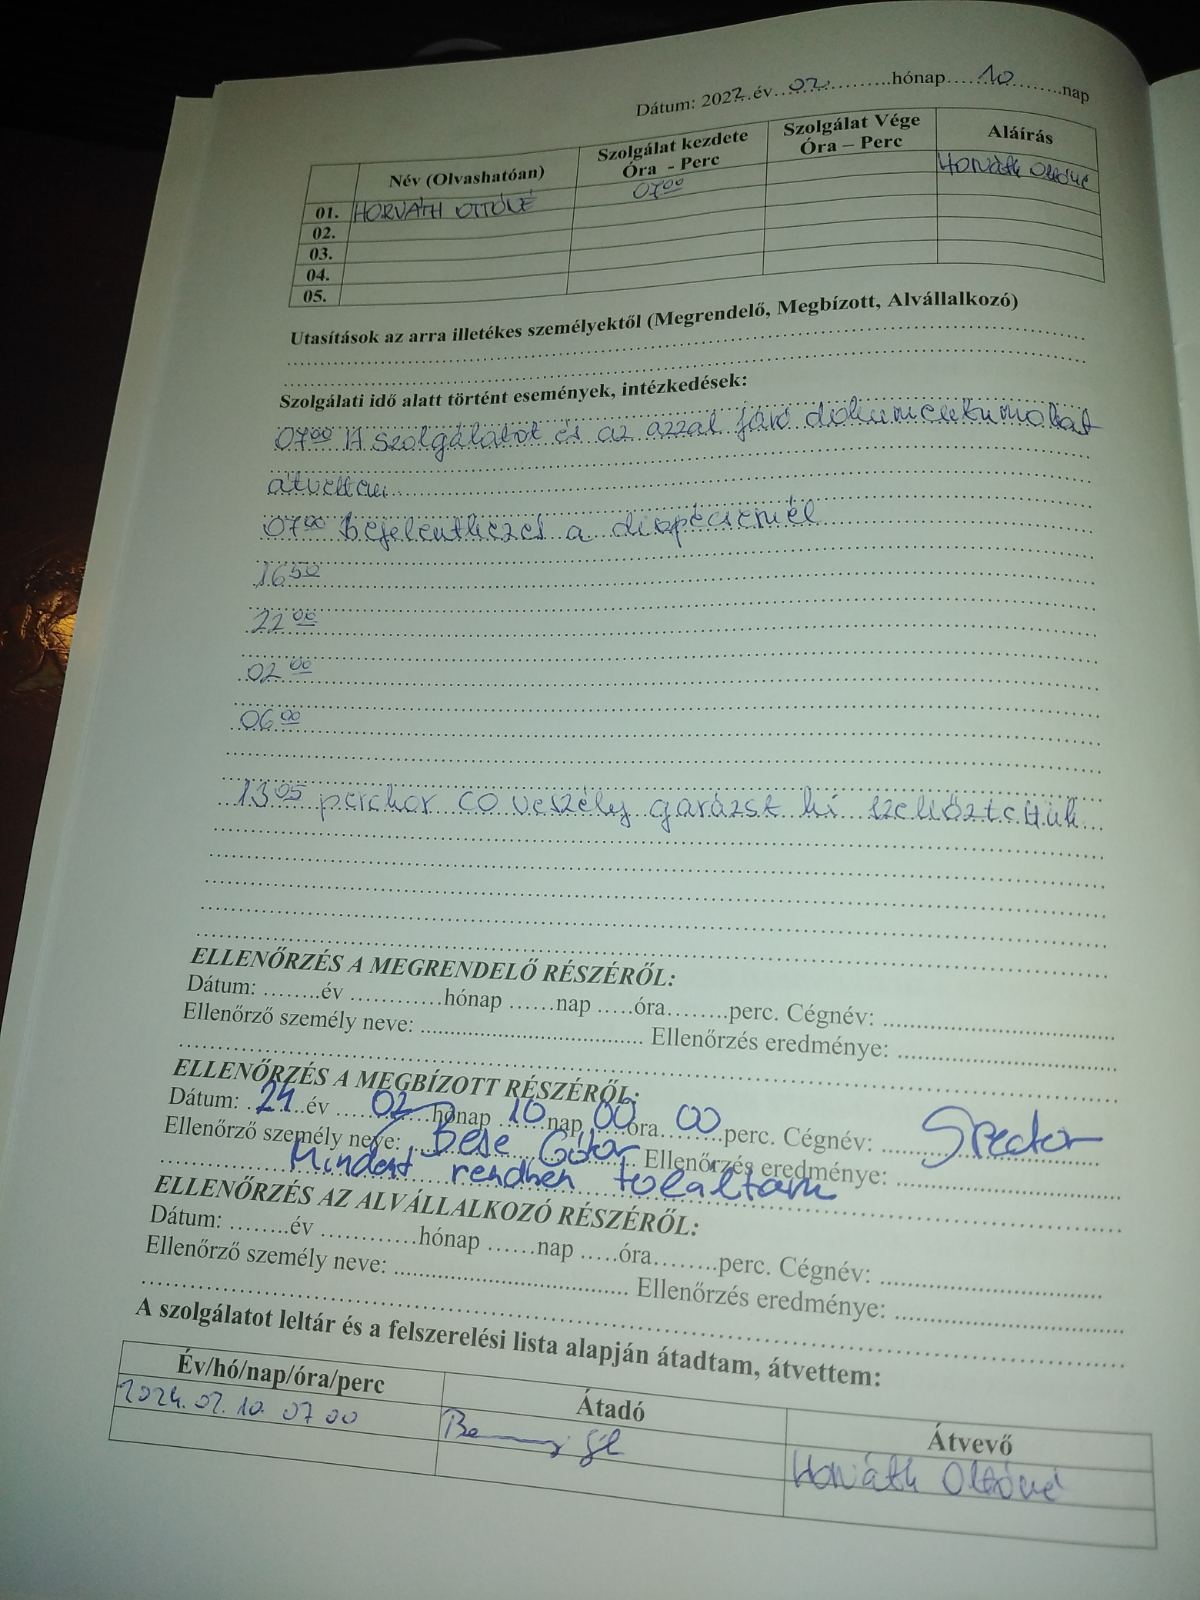 Dátum: 2022.év..02...........hónap....10..........nap
Név (Olvashatóan) Szolgálat kezdete Óra - Perc Szolgálat Vége Óra – Perc Aláírás
01. HORVÁTH OTTÓNÉ 07⁰⁰ Horváth Ottóné
02.
03.
04.
05.
Utasítások az arra illetékes személyektől (Megrendelő, Megbízott, Alvállalkozó)
Szolgálati idő alatt történt események, intézkedések:
07⁰⁰ A szolgálatot és az azzal járó dokumentumokat
átvettem
07⁰⁰ Bejelentkezés a diszpécsernél
16⁵⁰
22⁰⁰
02⁰⁰
06⁰⁰
13⁰⁵ perckor co veszély garázst ki szellőztettük
ELLENŐRZÉS A MEGRENDELŐ RÉSZÉRŐL:
Dátum: ........év ............hónap ......nap .....óra........perc. Cégnév: ..............................
Ellenőrző személy neve: ................................. Ellenőrzés eredménye: ..............................
ELLENŐRZÉS A MEGBÍZOTT RÉSZÉRŐL:
Dátum: 24 év 02 hónap 10 nap 00 óra 00 perc. Cégnév:
Ellenőrző személy neve: Bese Ellenőrzés eredménye:
Mindent rendben találtam
ELLENŐRZÉS AZ ALVÁLLALKOZÓ RÉSZÉRŐL:
Dátum: ........év ............hónap ......nap .....óra........perc. Cégnév: ..............................
Ellenőrző személy neve: ................................. Ellenőrzés eredménye: ..............................
A szolgálatot leltár és a felszerelési lista alapján átadtam, átvettem:
Év/hó/nap/óra/perc Átadó Átvevő
2024. 02. 10. 07 00 Horváth Ottóné